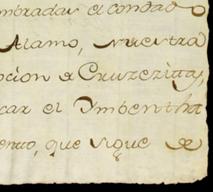 ombradas el condado
Alamo, nuestra
pcion a Cruzezittas,
car el Ymbentta
ento, que sigue de